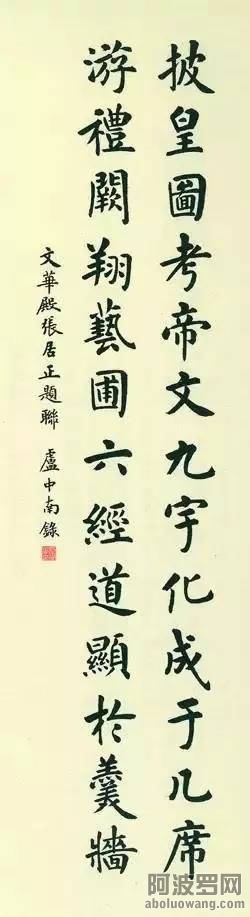 披皇圖考帝文九宇化成于几席
游禮闕翔藝圃六經道顯於羹牆
文華殿張居正題聯 盧中南錄
阿波罗网
aboluowang.com